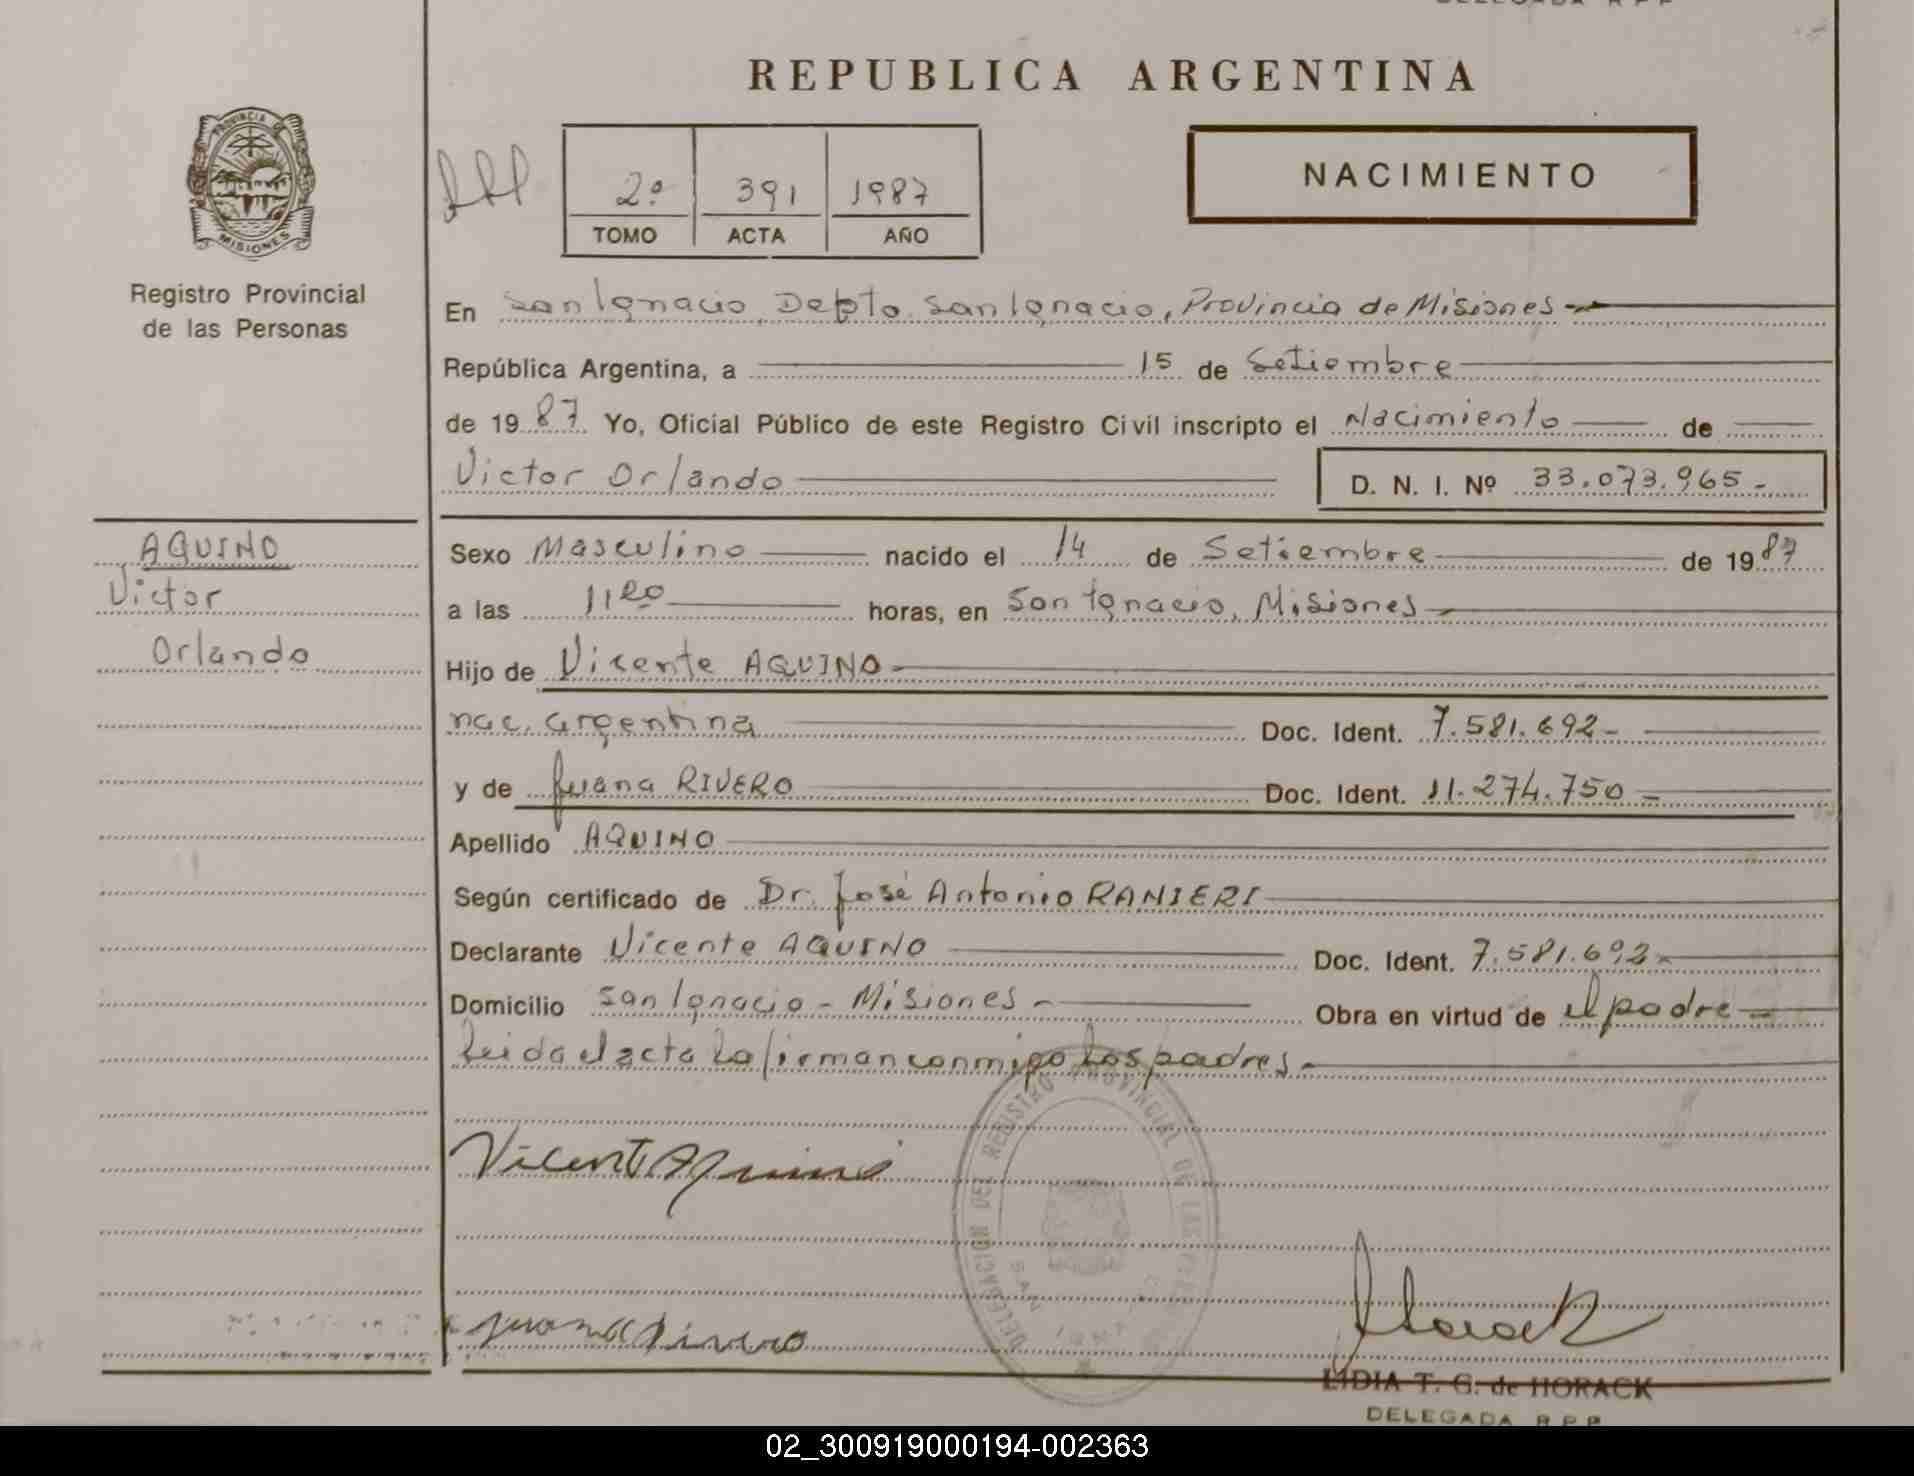 REPUBLICA ARGENTINA
PROVINCIA DE
MISIONES
Registro Provincial
de las Personas
2º 391 1987
TOMO ACTA AÑO
NACIMIENTO
En San Ignacio, Depto. San Ignacio, Provincia de Misiones
República Argentina, a 15 de Setiembre
de 1987 Yo, Oficial Público de este Registro Civil inscripto el Nacimiento de
Victor Orlando
D. N. I. Nº 33.073.965-
AQUINO
Victor
Orlando
Sexo Masculino nacido el 14 de Setiembre de 1987
a las horas, en San Ignacio, Misiones
Hijo de Vicente AQUINO
nac. argentina Doc. Ident. 7.581.692-
y de Juana RIVERO Doc. Ident. 11.274.750-
Apellido AQUINO
Según certificado de Dr. José Antonio RANIERI
Declarante Vicente AQUINO Doc. Ident. 7.581.692-
Domicilio San Ignacio - Misiones - Obra en virtud de el padre
Leida el acta la firman conmigo los padres.-
Vicente Aquino
DELEGACION DEL REGISTRO PROVINCIAL DE LAS
SAN
Juana Rivero
Horack
LIDIA T. G. de HORACK
DELEGADA R.P.P.
02_300919000194-002363